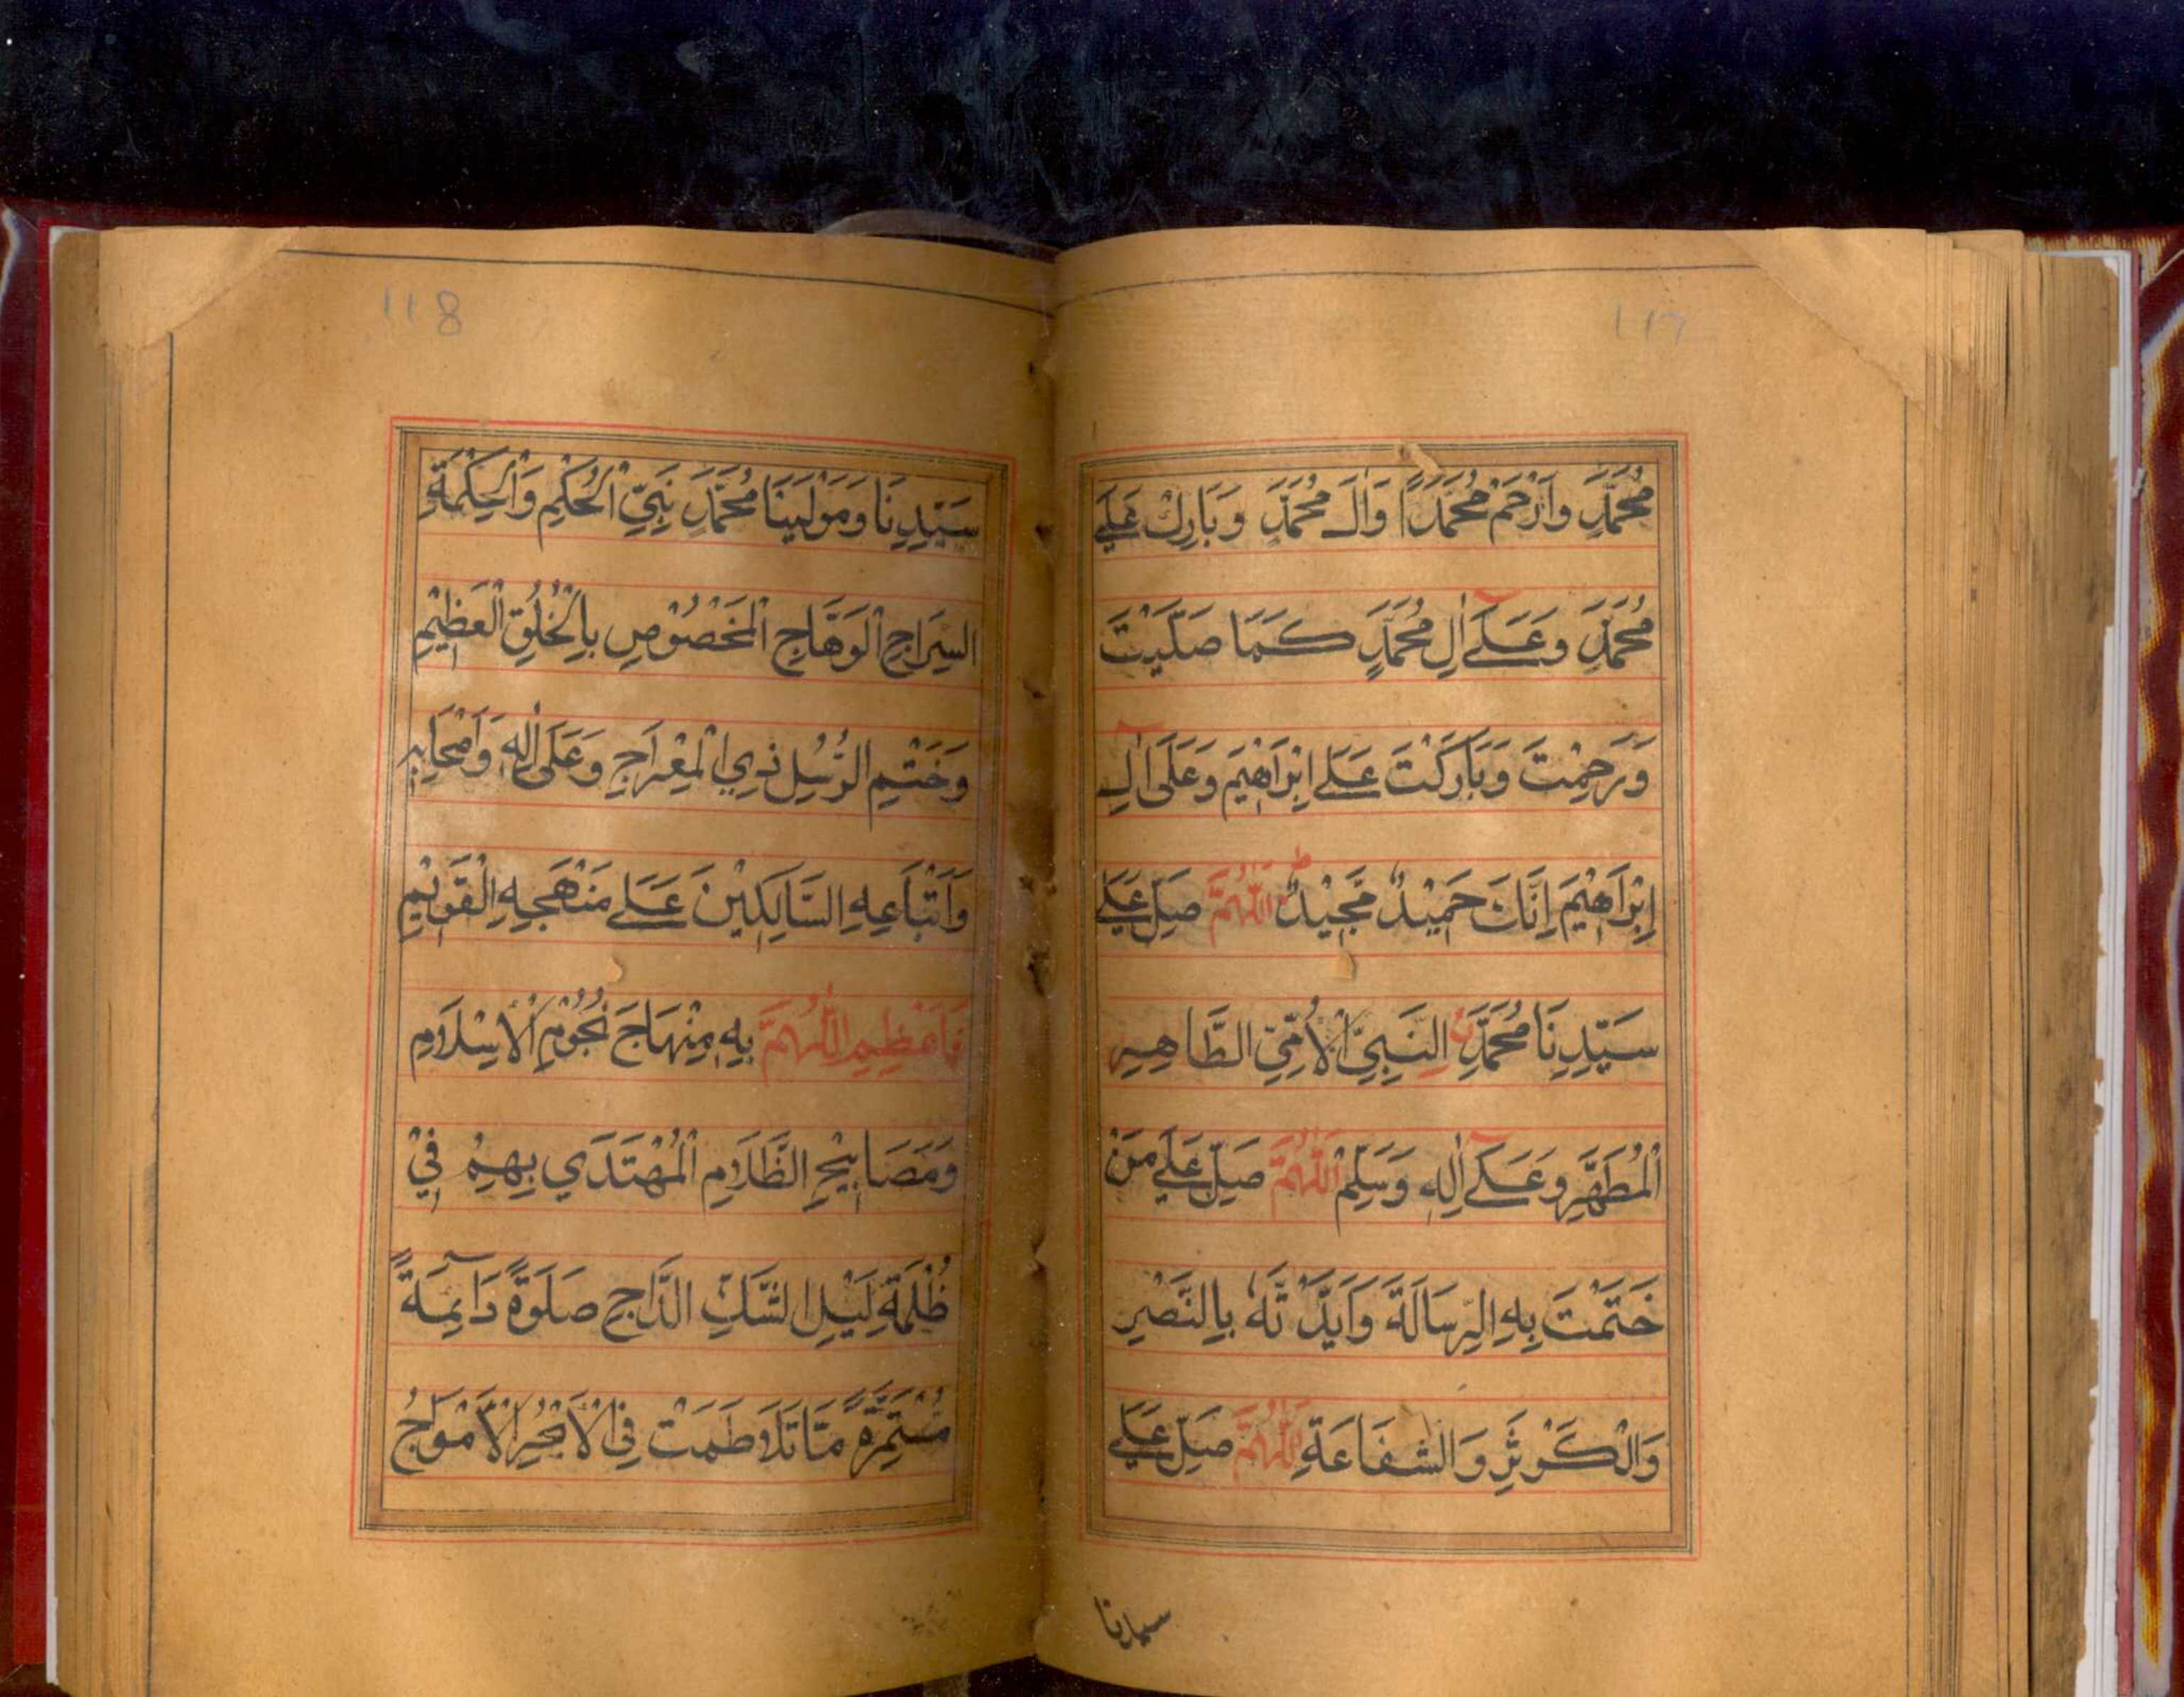 117
مُحَمَّدٍ وَارْحَمْ مُحَمَّدًا وَاٰلَ مُحَمَّدٍ وَبَارِكْ عَلٰے
مُحَمَّدٍ وَعَلٰے اٰلِ مُحَمَّدٍ كَمَا صَلَّيْتَ
وَرَحِمْتَ وَبَارَكْتَ عَلٰے اِبْرَاهِيْمَ وَعَلٰى اٰلِ
اِبْرَاهِيْمَ اِنَّكَ حَمِيْدٌ مَّجِيْدٌ ط اَللّٰهُمَّ صَلِّ عَلٰے
سَيِّدِنَا مُحَمَّدِنِ النَّبِيِّ الْاُمِّيِّ الطَّاهِرِ
الْمُطَهَّرِ وَعَلٰے اٰلِهٖ وَسَلِّمْ اَللّٰهُمَّ صَلِّ عَلٰے مَنْ
خَتَمْتَ بِهِ الرِّسَالَةَ وَاَيَّدْتَهٗ بِالنَّصْرِ
وَالْكَوْثَرِ وَالشَّفَاعَةِ اَللّٰهُمَّ صَلِّ عَلٰے
سيدنا
118
سَيِّدِنَا وَمَوْلٰينَا مُحَمَّدٍ نَبِيِّ الْحُكْمِ وَالْحِكْمَةِ
السِّرَاجِ الْوَهَّاجِ الْمَخْصُوْصِ بِالْخُلُقِ الْعَظِيْمِ
وَخَتْمِ الرُّسُلِ ذِي الْمِعْرَاجِ وَعَلٰى اٰلِهٖ وَاَصْحَابِهٖ
وَاَتْبَاعِهِ السَّالِكِيْنَ عَلٰے مَنْهَجِهِ الْقَوِيْمِ
فَاَعْظِمِ اللّٰهُمَّ بِهٖ مِنْهَاجَ نُجُوْمِ الْاِسْلَامِ
وَمَصَابِيْحِ الظَّلَامِ الْمُهْتَدٰي بِهِمْ فِيْ
ظُلْمَةِ لَيْلِ الشَّكِّ الدَّاجِ صَلٰوةً دَآئِمَةً
مُّسْتَمِرَّةً مَّا تَلَاطَمَتْ فِي الْاَبْحُرِ الْاَمْوَاجُ